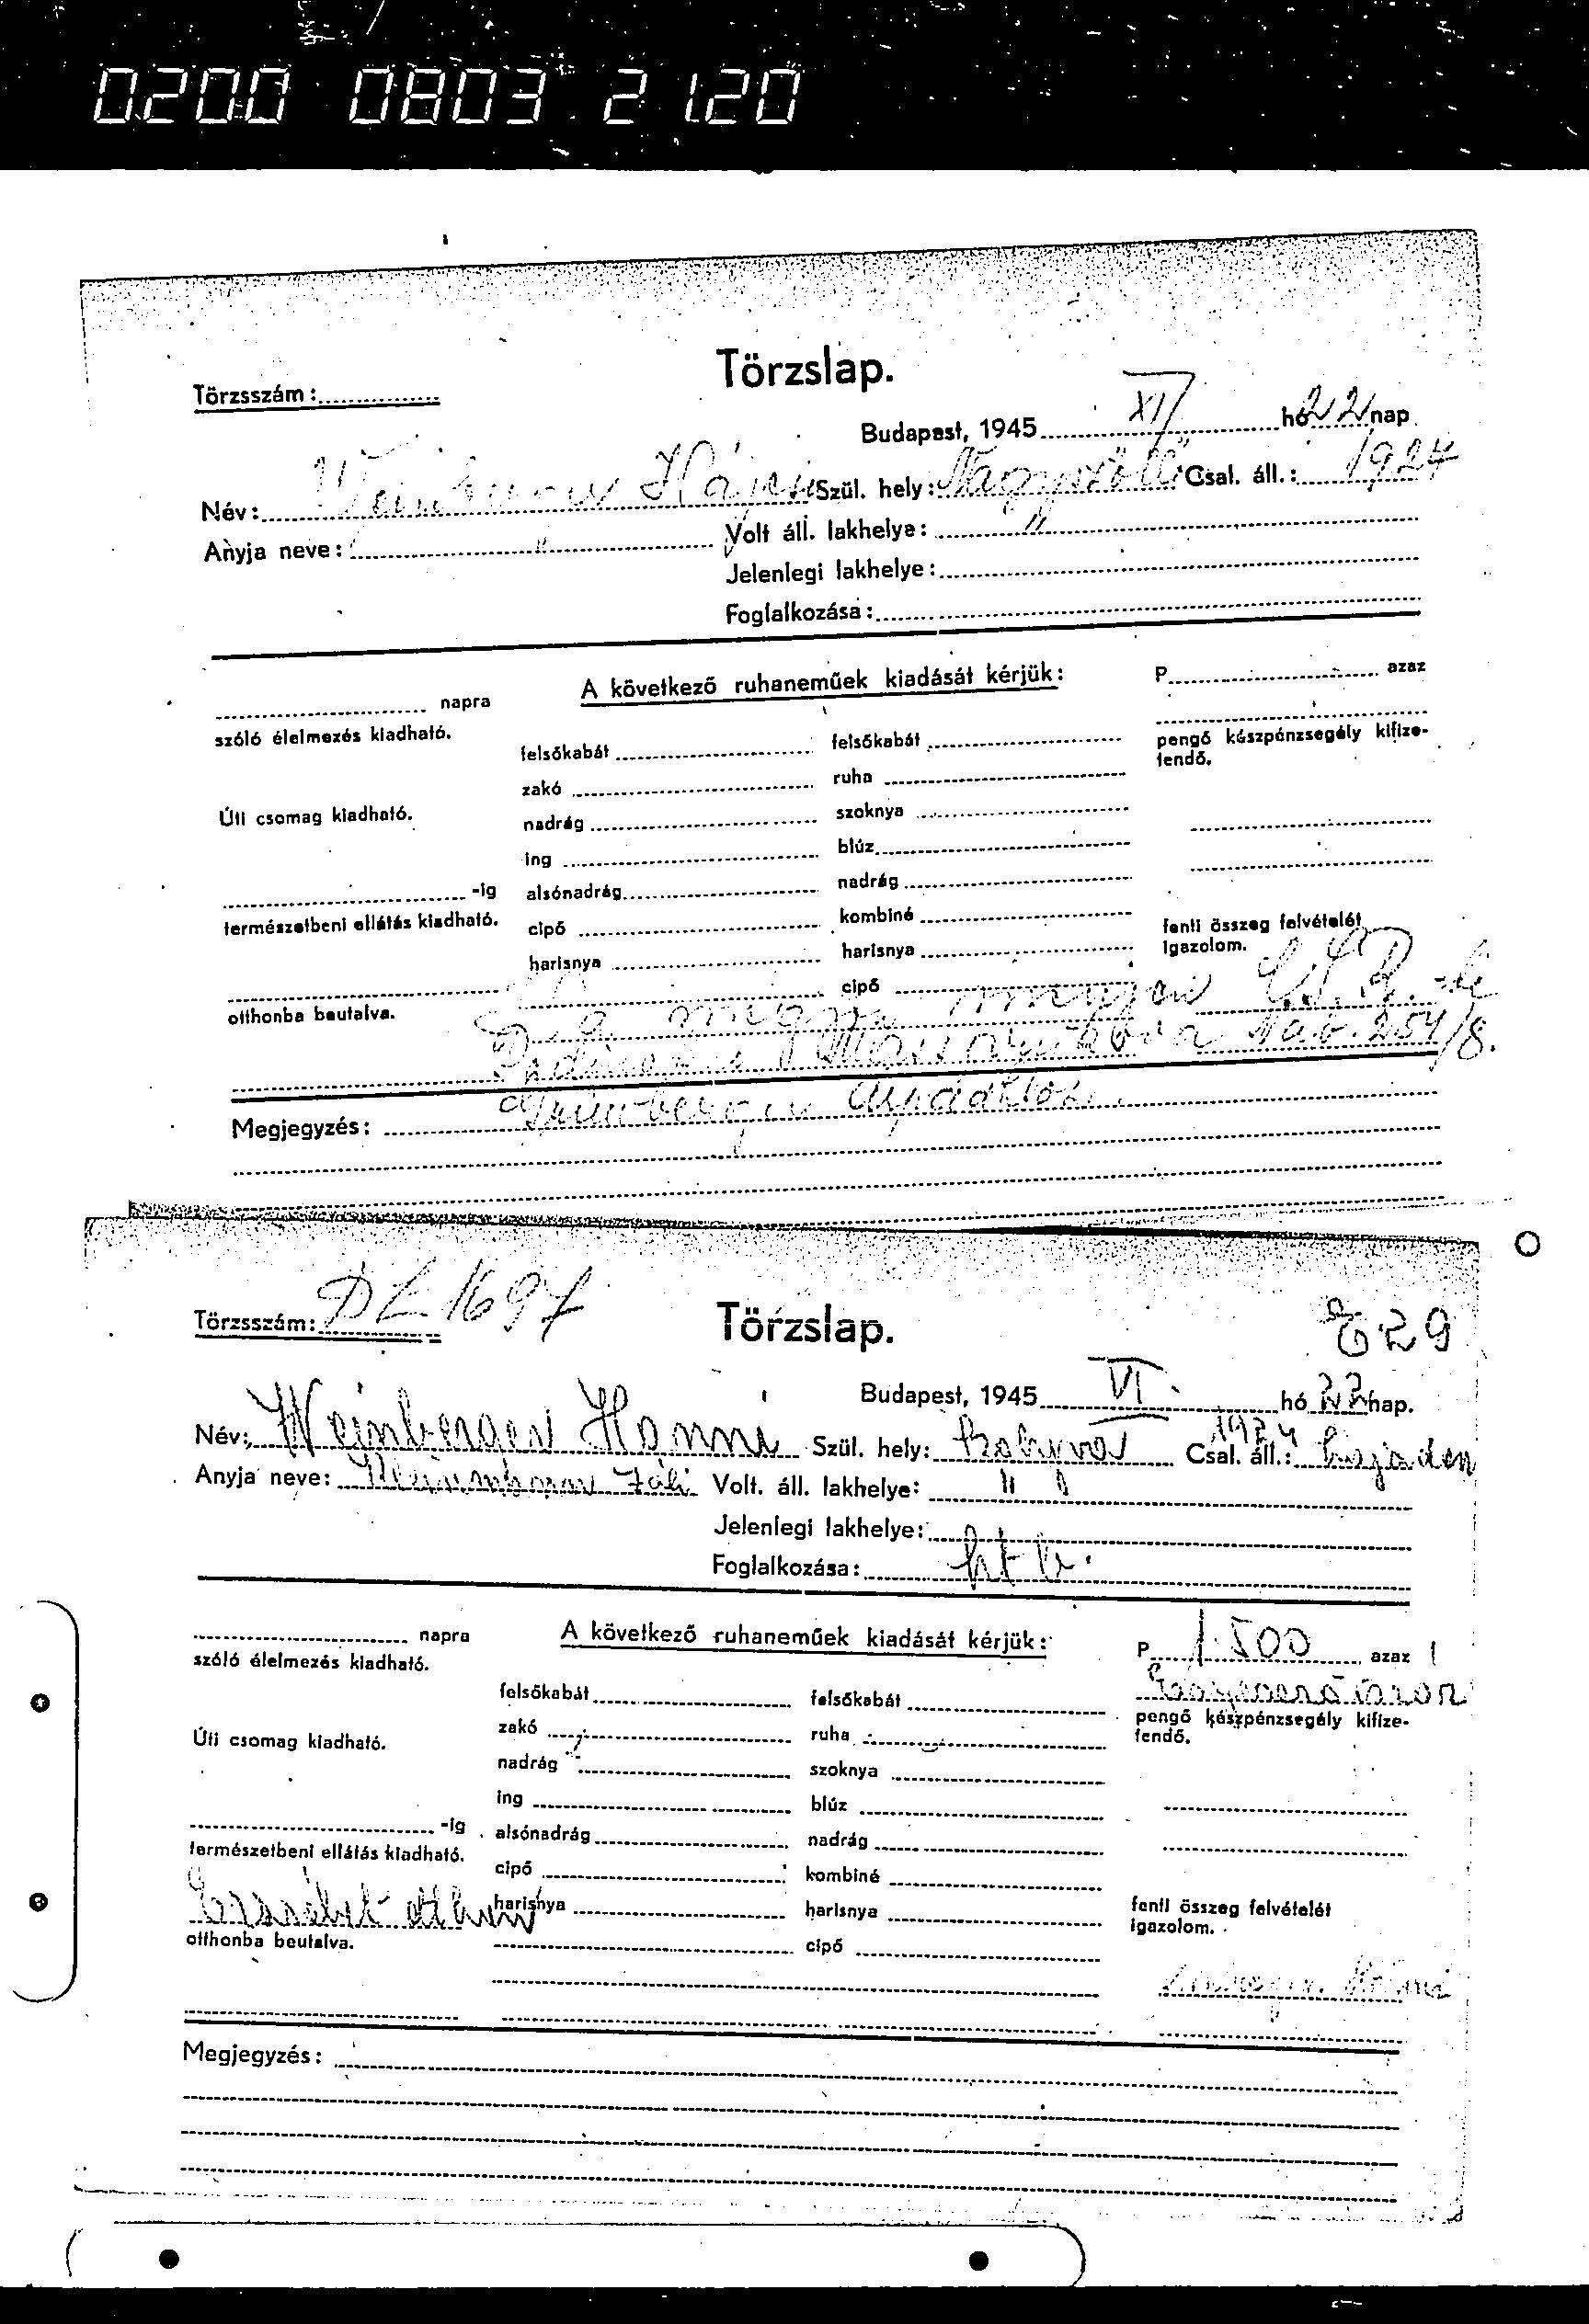 0200 0803 2120
Törzslap.
Törzsszám:
Budapest, 1945 XI hó 22 nap.
Név: Szül. hely: Nagyszőllős Csal. áll.: 1924
Anyja neve: " Volt áll. lakhelye: "
Jelenlegi lakhelye:
Foglalkozása:
napra A következő ruhaneműek kiadását kérjük: P. azaz
szóló élelmezés kiadható. felsőkabát felsőkabát pengő készpénzsegély kifize-
tendő.
zakó ruha
Úti csomag kiadható. nadrág szoknya
ing blúz
-ig alsónadrág nadrág
természetbeni ellátás kiadható. cipő kombiné fenti összeg felvételét
harisnya harisnya igazolom.
cipő
otthonba beutalva.
254/8.
Megjegyzés:
Törzsszám: DL 1697 Törzslap. E 29
Budapest, 1945 VI. hó 22 nap.
1924
Név: Weinberger Hanni Szül. hely: Csal. áll.: hajadon
Anyja neve: Záli Volt. áll. lakhelye: "
Jelenlegi lakhelye:
Foglalkozása: htb.
napra A következő ruhaneműek kiadását kérjük: P. 1.500 azaz
szóló élelmezés kiadható. felsőkabát felsőkabát
zakó ruha pengő készpénzsegély kifize-
tendő.
Úti csomag kiadható. nadrág szoknya
ing blúz
-ig alsónadrág nadrág
természetbeni ellátás kiadható. cipő kombiné
Erzsébet otthon harisnya harisnya fenti összeg felvételét
igazolom.
otthonba beutalva. cipő
Megjegyzés: